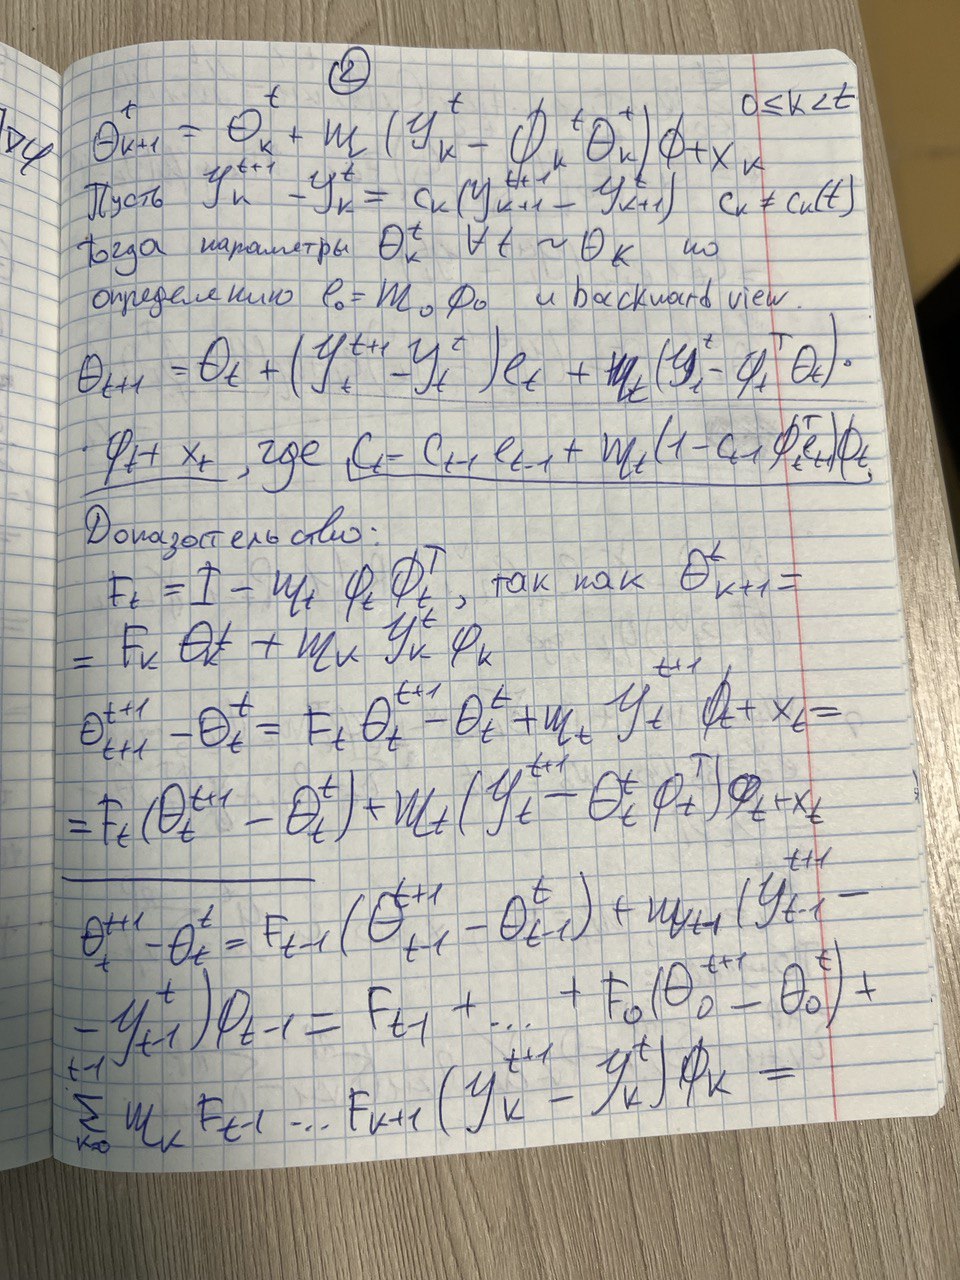 ②
θ^t_{k+1} = θ^t_k + m (y^t_k − ϕ_k^t θ^t_k)ϕ + x_k 0≤k<t
Пусть y^{t+1}_k − y^t_k = c_k (y^{t+1}_{k+1} − y^t_{k+1}) c_k ≠ c_k(t)
тогда параметры θ^t_k ∀t ~ θ_k по
определению e_0 = m_0 φ_0 и backward view.
θ_{t+1} = θ_t + (y^{t+1}_t − y^t_t) e_t + m_t (y^t_t − φ_t^T θ_t) ·
· φ_t + x_t, где C_t = C_{t-1} e_{t-1} + m_t (1 − c_{t-1} ϕ_t^T e_{t-1}) ϕ_t,
Доказательство:
F_t = I − m_t φ_t ϕ_t^T, так как θ^t_{k+1} =
= F_k θ^t_k + m_k y^t_k φ_k
θ^{t+1}_{t+1} − θ^t_t = F_t θ^{t+1}_t − θ^t_t + m_t y^{t+1}_t ϕ_t + x_t =
= F_t (θ^{t+1}_t − θ^t_t) + m_t (y^{t+1}_t − θ^t_t φ_t^T) φ_t + x_t
θ^{t+1}_t − θ^t_t = F_{t-1} (θ^{t+1}_{t-1} − θ^t_{t-1}) + m_{t-1} (y^{t+1}_{t-1} −
− y^t_{t-1}) φ_{t-1} = F_{t-1} + ... + F_0 (θ^{t+1}_0 − θ^t_0) +
Σ^{t-1}_{k=0} m_k F_{t-1} ... F_{k+1} (y^{t+1}_k − y^t_k) ϕ_k =